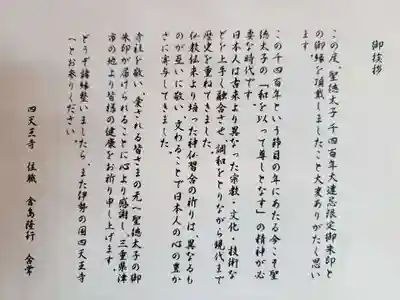 御挨拶
この度、聖徳太子千四百年大遠忌限定御朱印と
の御縁を頂戴しましたこと大変ありがたく思い
ます。
この千四百年という節目の年にあたる今こそ聖
徳太子の「和を以って尊しとなす」の精神が必
要な時代です。
日本人は古来より異なった宗教・文化・技術な
どを上手く融合させ、調和をとりながら現代まで
歴史を重ねてきました。
仏教伝来より培った神仏習合の祈りは、異なるも
のが互いに敬い、交わることで日本人の心の豊か
さに寄与してきました。
寺社を敬い、愛される皆さまの元へ聖徳太子の御
朱印が届けられることに心より感謝し、三重県津
市の地より皆様の健康をお祈り申し上げます。
どうぞ諸縁整いましたら、また伊勢の国四天王寺
へとお参りください。
四天王寺 住職 倉島隆行 合掌